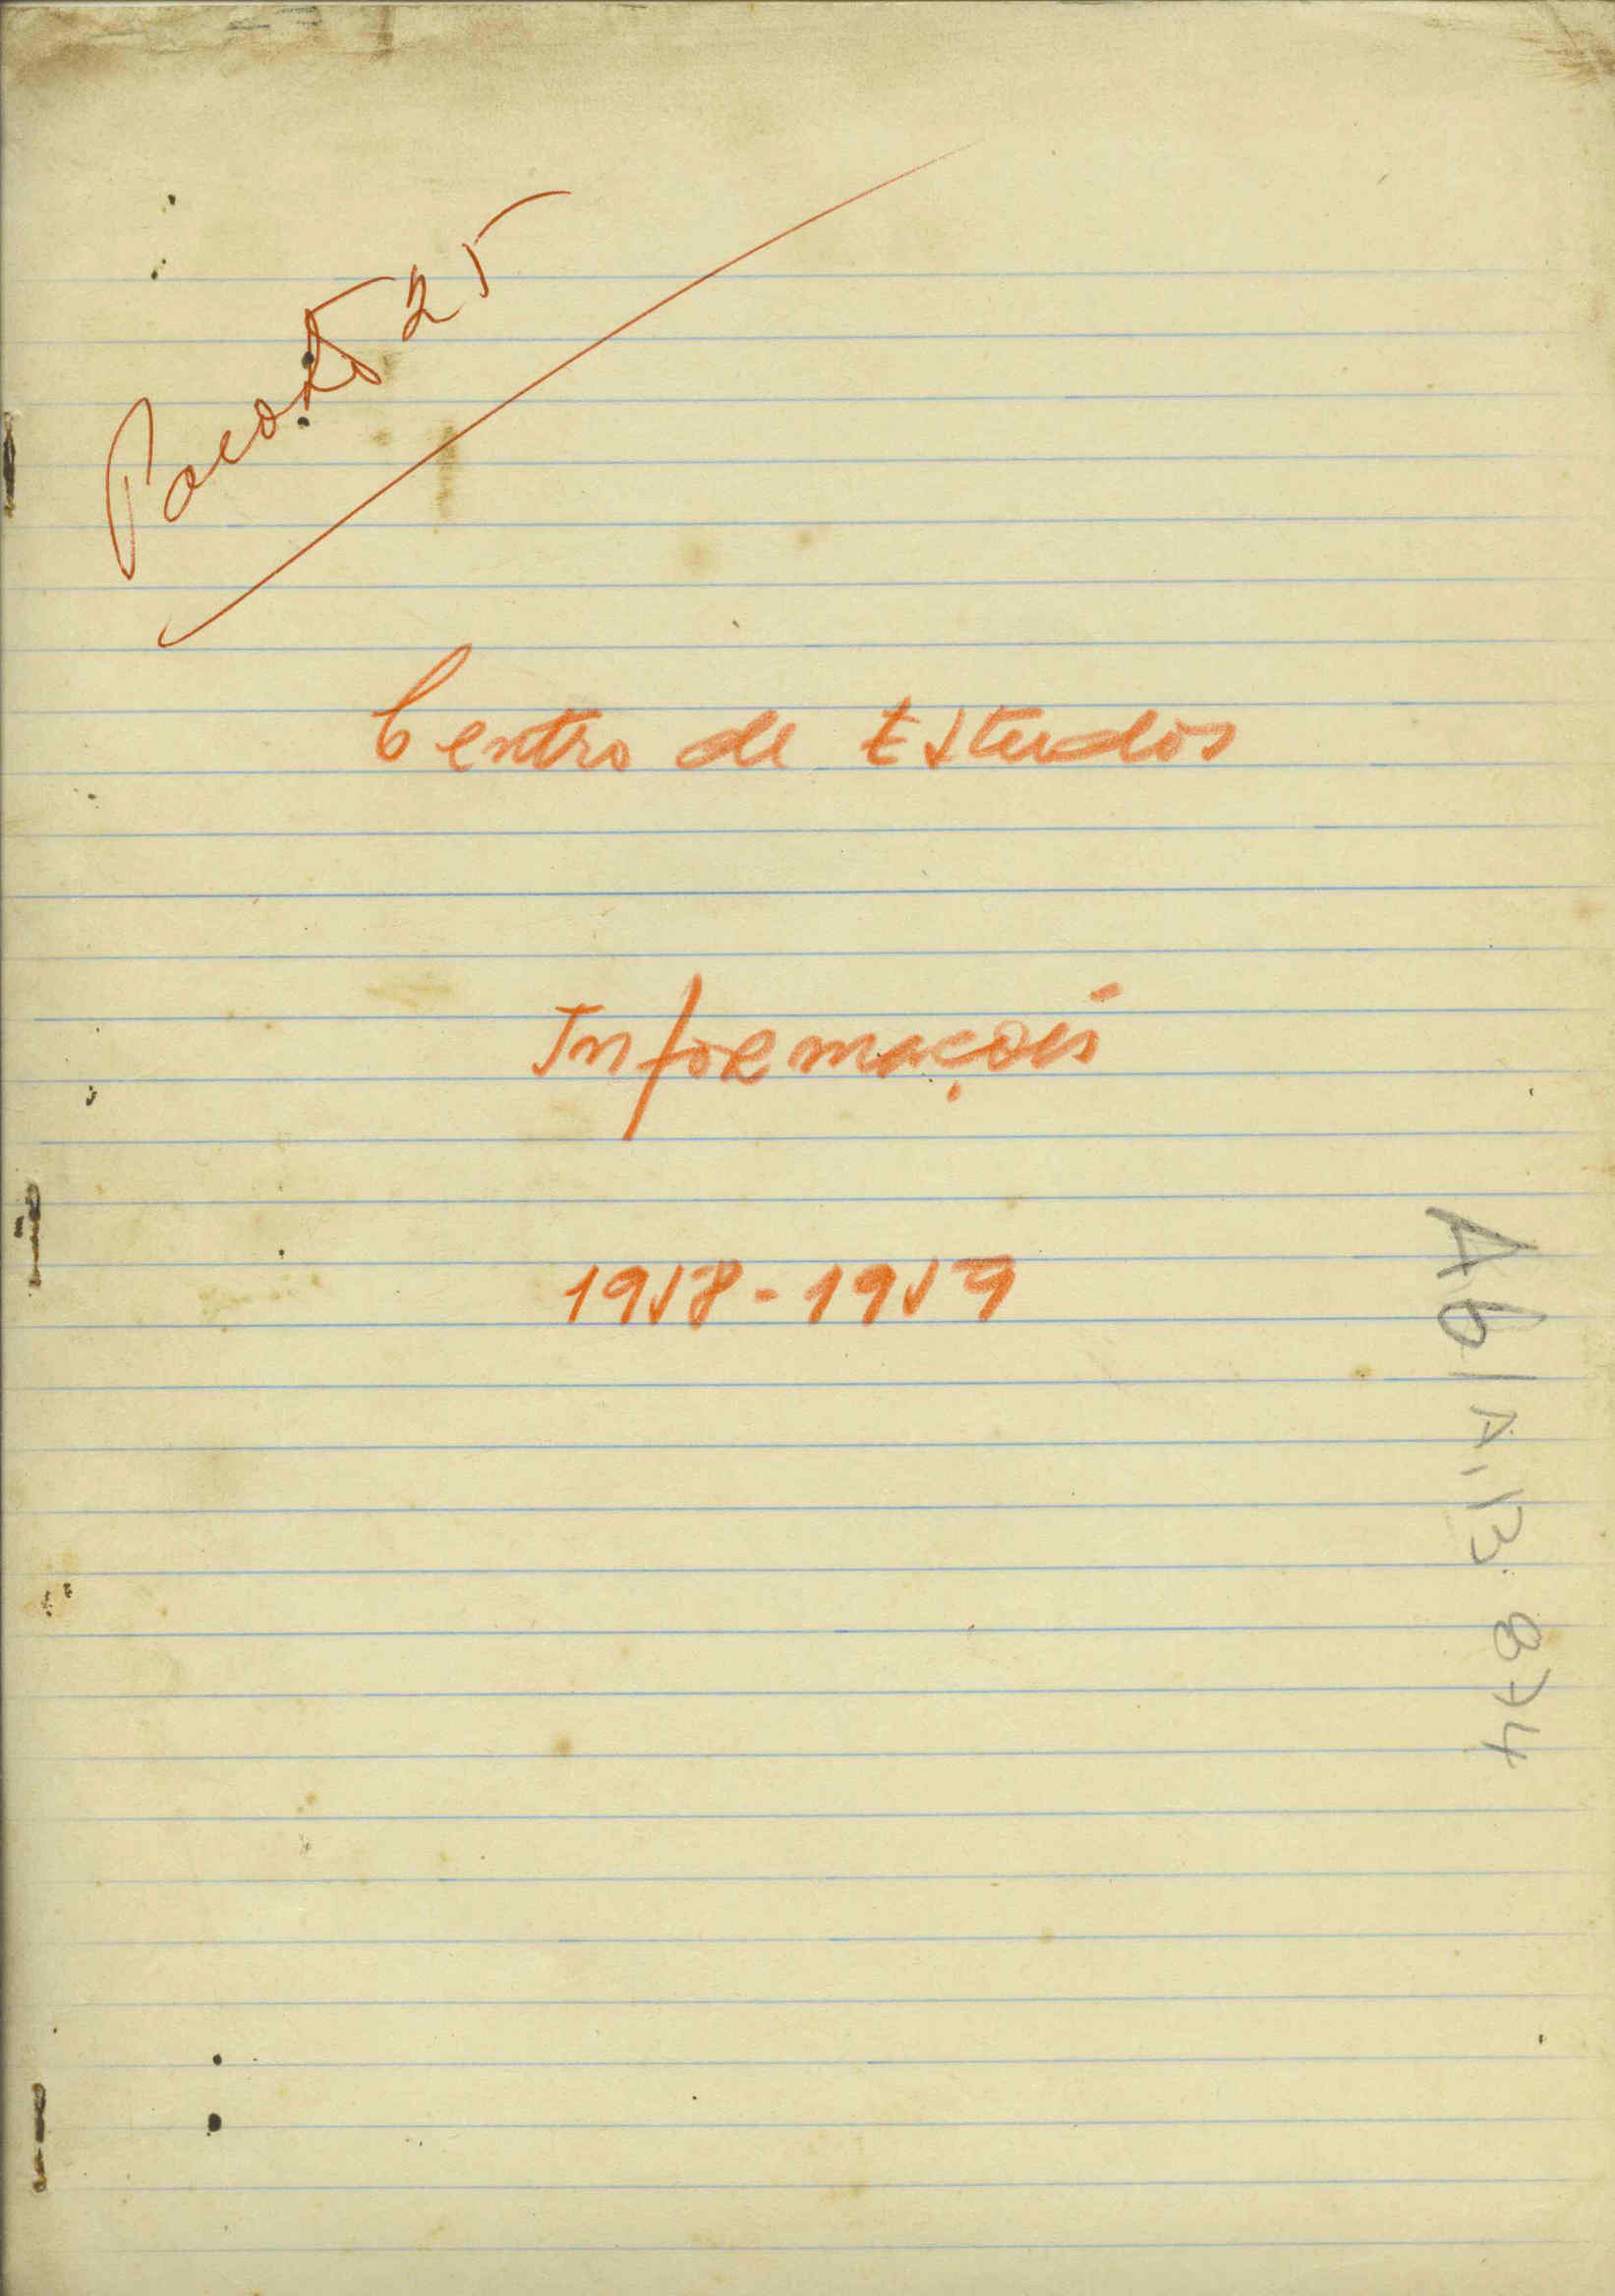 Pacote 25
Centro de Estudos
Informações
1958-1959
A6/A-13. 874